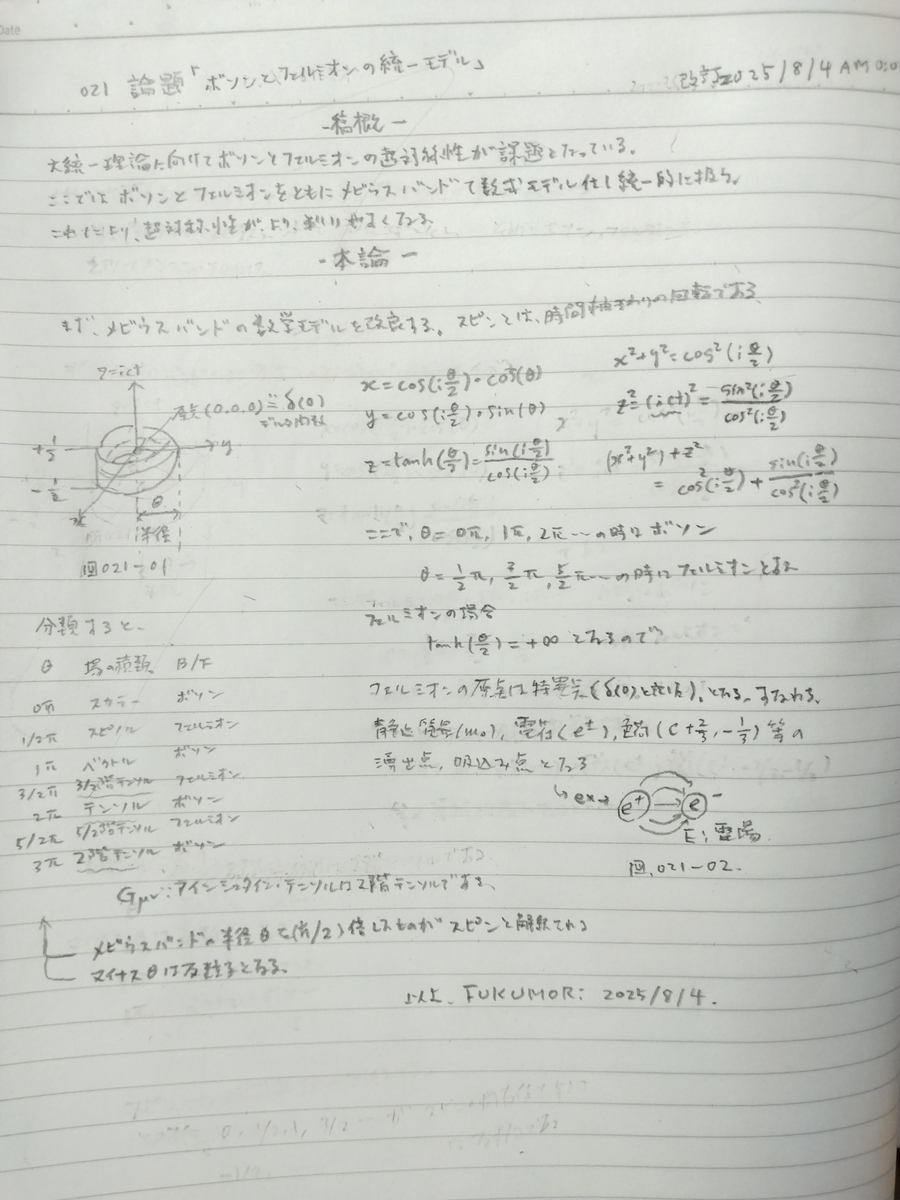 Date
021 論題「ボソンとフェルミオンの統一モデル」
改訂2025/8/4 AM 0:0
-稿概-
大統一理論に向けてボソンとフェルミオンの超対称性が課題となっている。
ここではボソンとフェルミオンをともにメビウスバンドで数式モデル化し統一的に扱う。
これにより、超対称性が、より、扱いやすくなる
-本論-
まず、メビウスバンドの数学モデルを改良する。スピンとは、時間軸まわりの回転である
z=ict
原点(0.0.0)≡δ(0)
デルタ関数
+1/2
-1/2
y
x
θ
半径
図021-01
x=cos(iθ/2)・cos(θ)
y=cos(iθ/2)・sin(θ)
z=tanh(θ/2)=sin(iθ/2)/cos(iθ/2)
x²+y²=cos²(iθ/2)
z²=(ict)²=sin²(iθ/2)/cos²(iθ/2)
(x²+y²)+z²
=cos²(iθ/2)+sin(iθ/2)/cos²(iθ/2)
ここで、θ=0π, 1π, 2π…の時はボソン
θ=1/2π, 3/2π, 5/2π…の時はフェルミオンとなる
フェルミオンの場合
tanh(θ/2)=+∞となるので
フェルミオンの原点は特異点(δ(0)と表記)、となる。すなわち、
静止質量(m₀), 電荷(e±), 色荷(C+2/3, -1/3)等の
湧出点, 吸込み点となる
ex→ e⁺ e⁻
E: 電場
図.021-02.
分類すると、
θ 場の種類 B/F
0π スカラー ボソン
1/2π スピノル フェルミオン
1π ベクトル ボソン
3/2π 3/2階テンソル フェルミオン
2π テンソル ボソン
5/2π 5/2階テンソル フェルミオン
3π 2階テンソル ボソン
Gμν:アインシュタイン・テンソルは2階テンソルである、
メビウスバンドの半径θを(ℏ/2)倍したものがスピンと解釈できる
マイナスθは反粒子となる。
以上. FUKUMORI 2025/8/4.